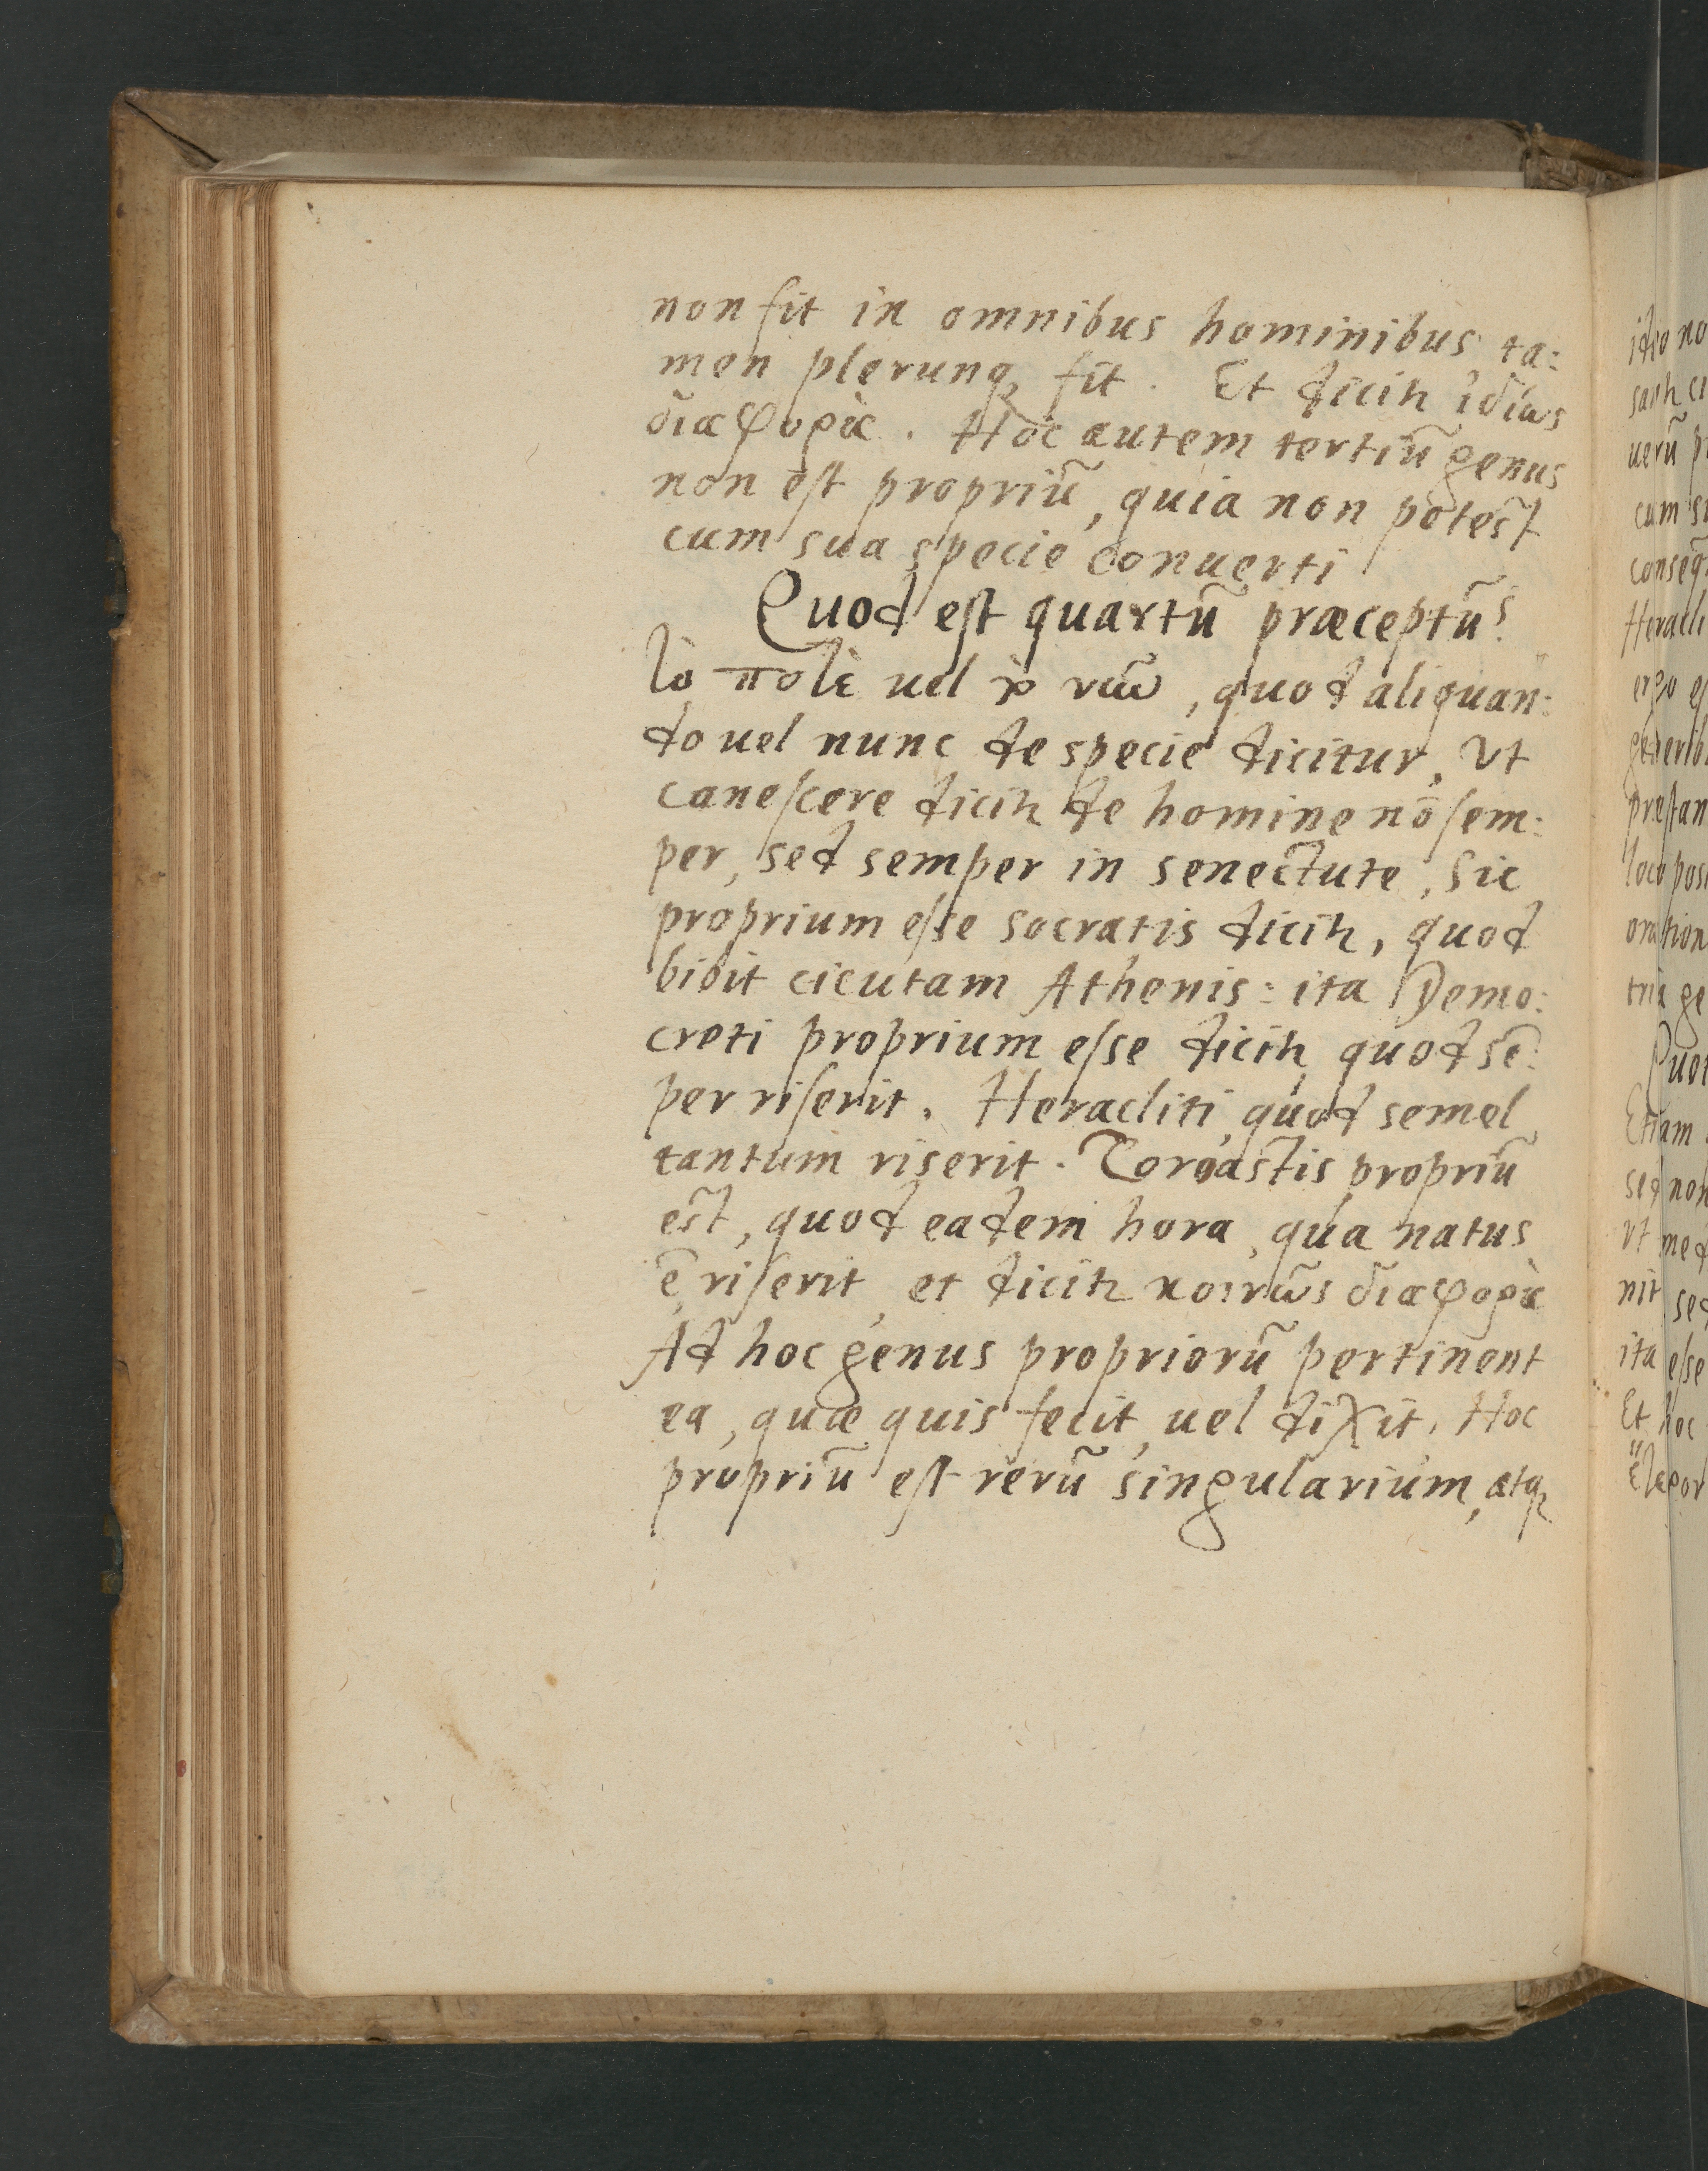 non fit in omnibus hominibus ta:
men plerunqꝫ fit. Et dicitꝛ ἰδίως
διαφορὰ. Hoc autem tertiũ genus
non est propriũ, quia non potest
cum sua specie conuerti
Quod est quartũ præceptũ?
Τὸ ποτὲ uel τὸ νῦν, quod aliquan:
do uel nunc de specie dicitur, vt
canescere dicitꝛ de homine nõ sem:
per, sed semper in senectute, Sic
proprium esse Socratis dicitꝛ, quod
bibit cicutam Athenis: ita Demo:
creti proprium esse dicitꝛ, quod sẽ:
per riserit. Heracliti, quod semel
tantum riserit. Zoroastis propriũ
est, quod eadem hora, qua natus
ẽ, riserit, et dicitꝛ κοινῶς διαφορὰ
Ad hoc genus propriorũ pertinent
ea, quæ quis fecit, uel dixit, Hoc
propriũ est rerũ singularium, atqꝫ
ideo no
uerũ
cum
Heracli
ergo
oration
tria ge
Etiam
sed non
vt med
nit sed
ita esse
Et hoc